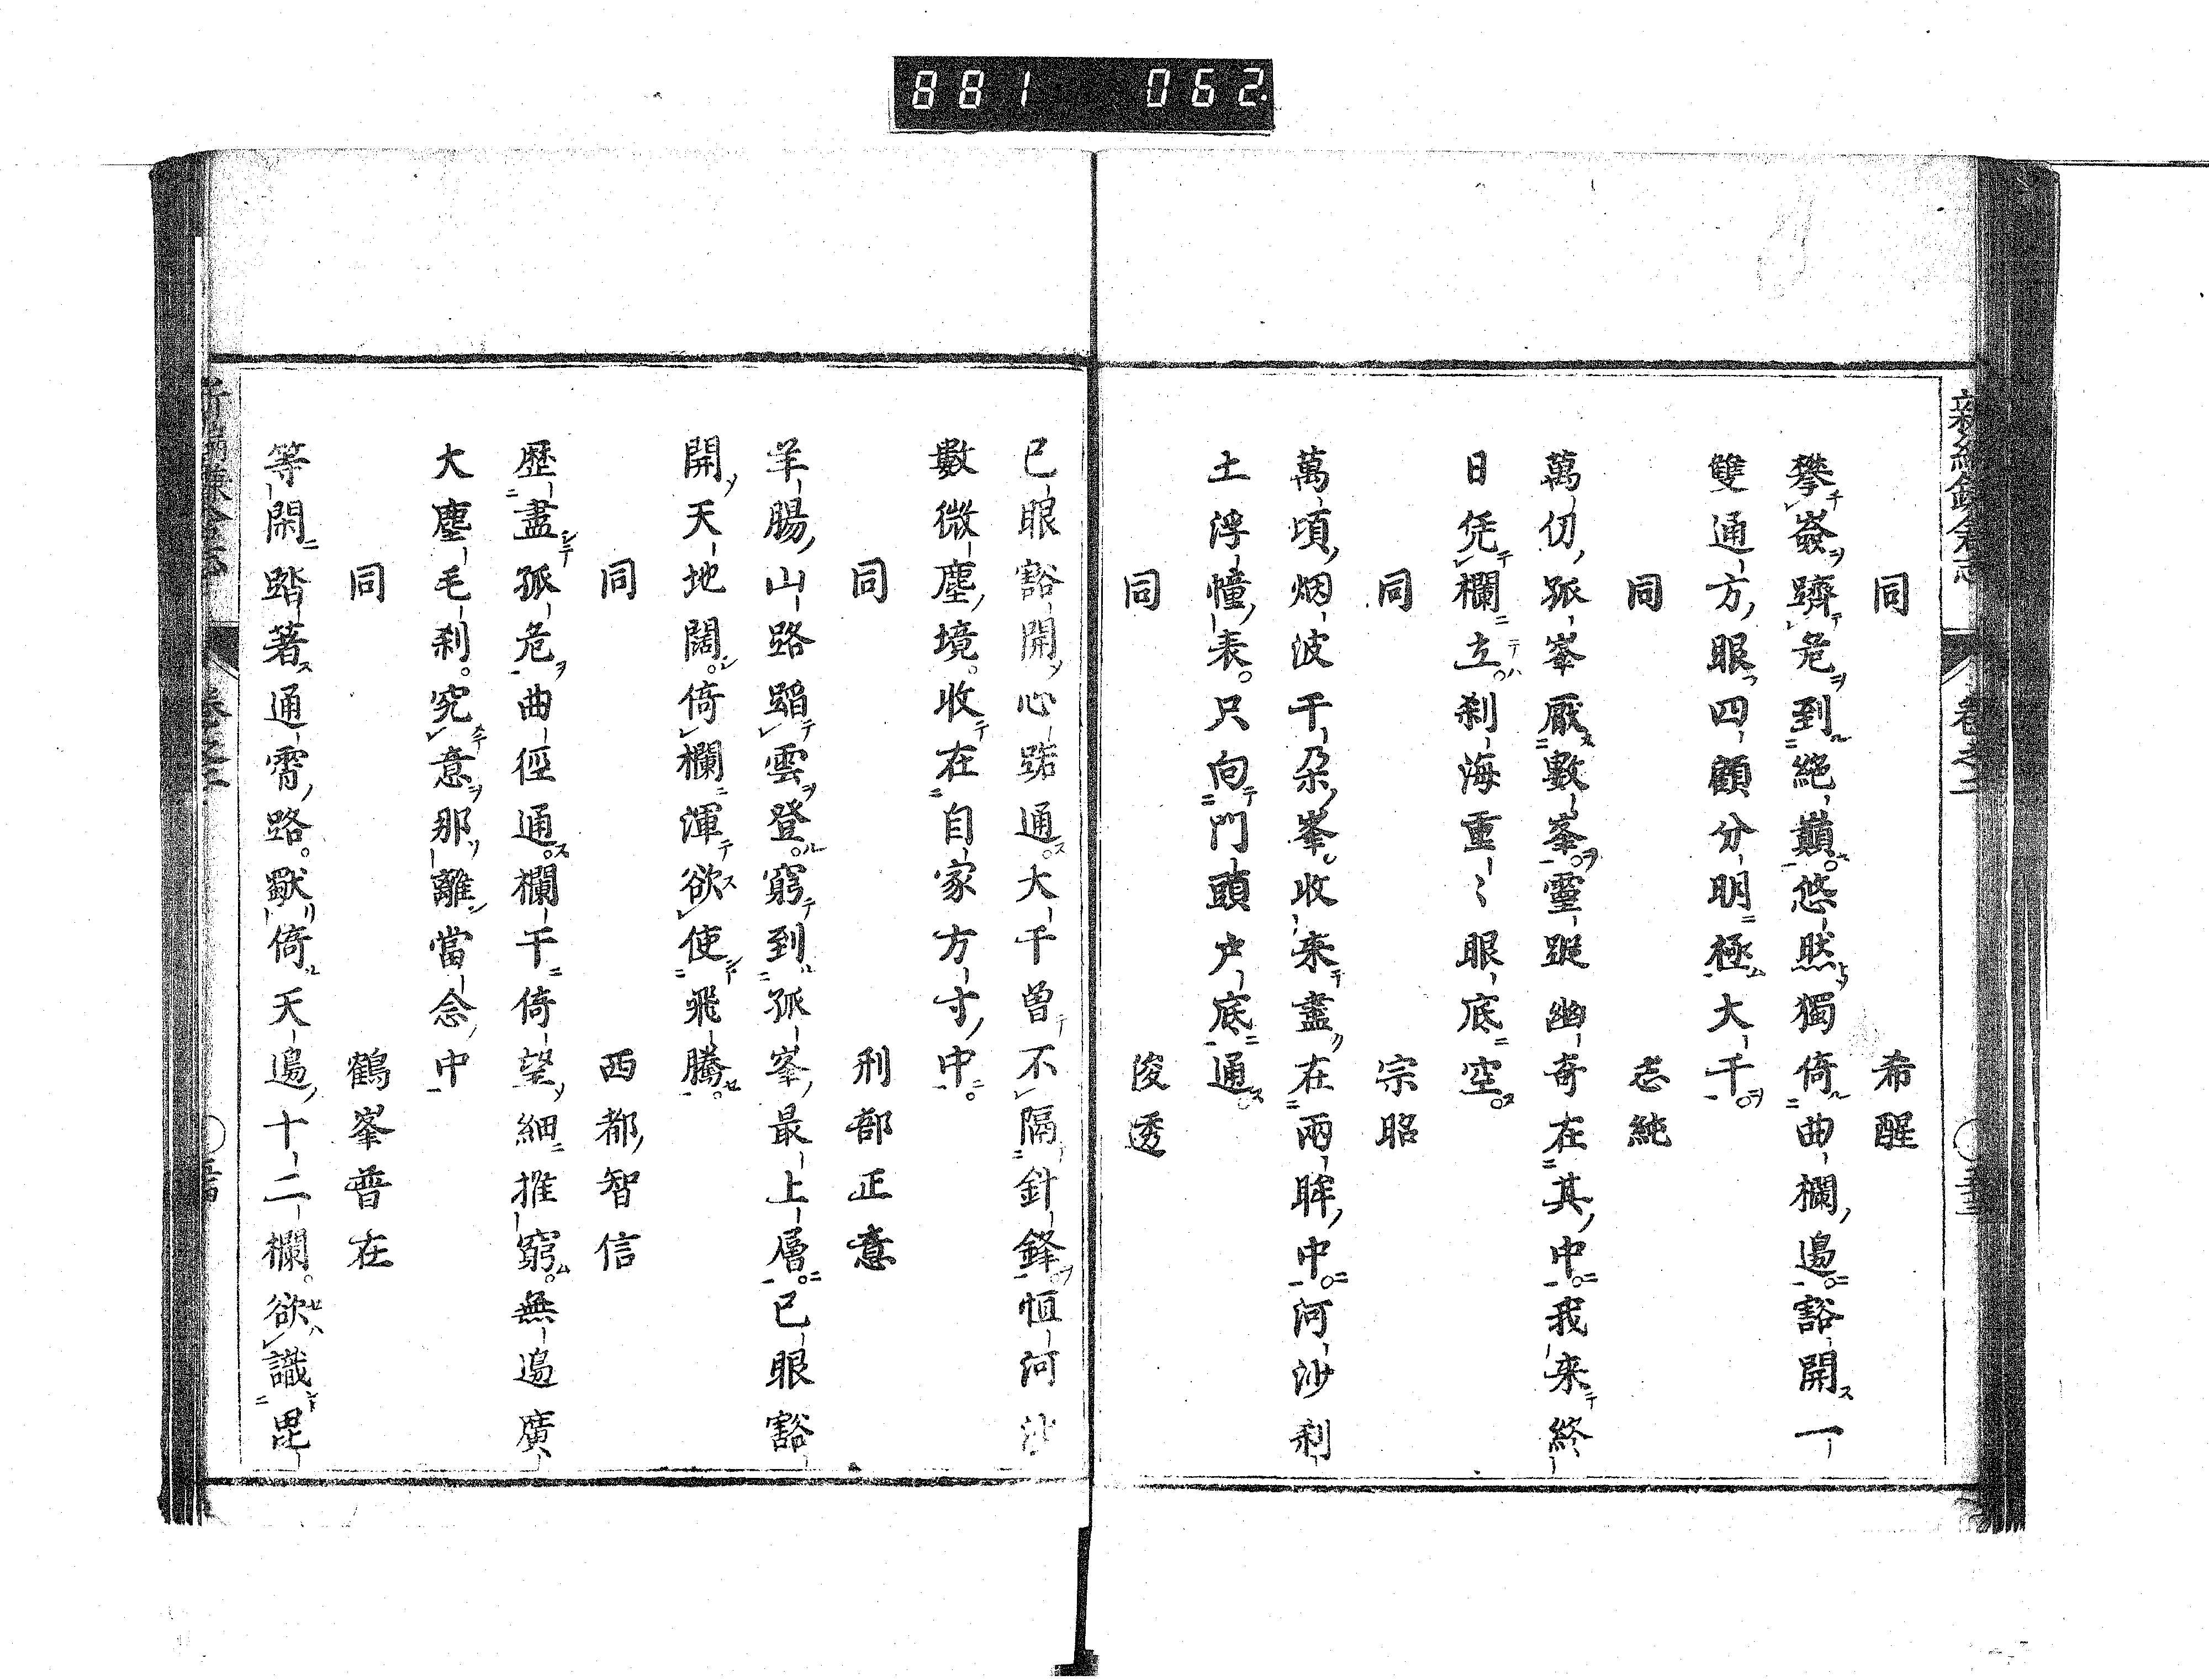 881 062
同 希醒
攀巌躋危到絕巔。悠然獨倚曲欄邉。豁開一
雙通方眼四顧分明極大千。
同 志純
萬仞孤峯厭數峯。靈蹤幽奇在其中。我来終
日凭欄立。刹海重〻眼底空。
同 宗昭
萬頃烟波千朶峯。收来盡在兩眸中。河沙刹
土浮幢表。只向門頭戸底通。
同 俊透
已眼豁開心路通。大千曽不隔針鋒。恒河沙
數微塵境。收在自家方寸中。
同 刑部正意
羊腸山路蹈雲登。窮到孤峯最上層。已眼豁
開天地闊。倚欄渾欲使飛騰。
同 西都智信
歴盡孤危曲徑通。欄干倚望細推窮。無邉廣
大塵毛刹。究意那離當念中
同 鶴峯普在
等閑踏著通霄路。獣倚天邉十二欄。欲識毘